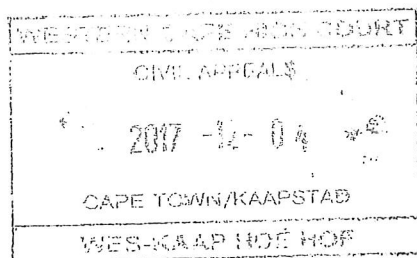 WESTERN CAPE HIGH COURT
CIVIL APPEALS
2017 -12- 04
CAPE TOWN/KAAPSTAD
WES-KAAP HOË HOF